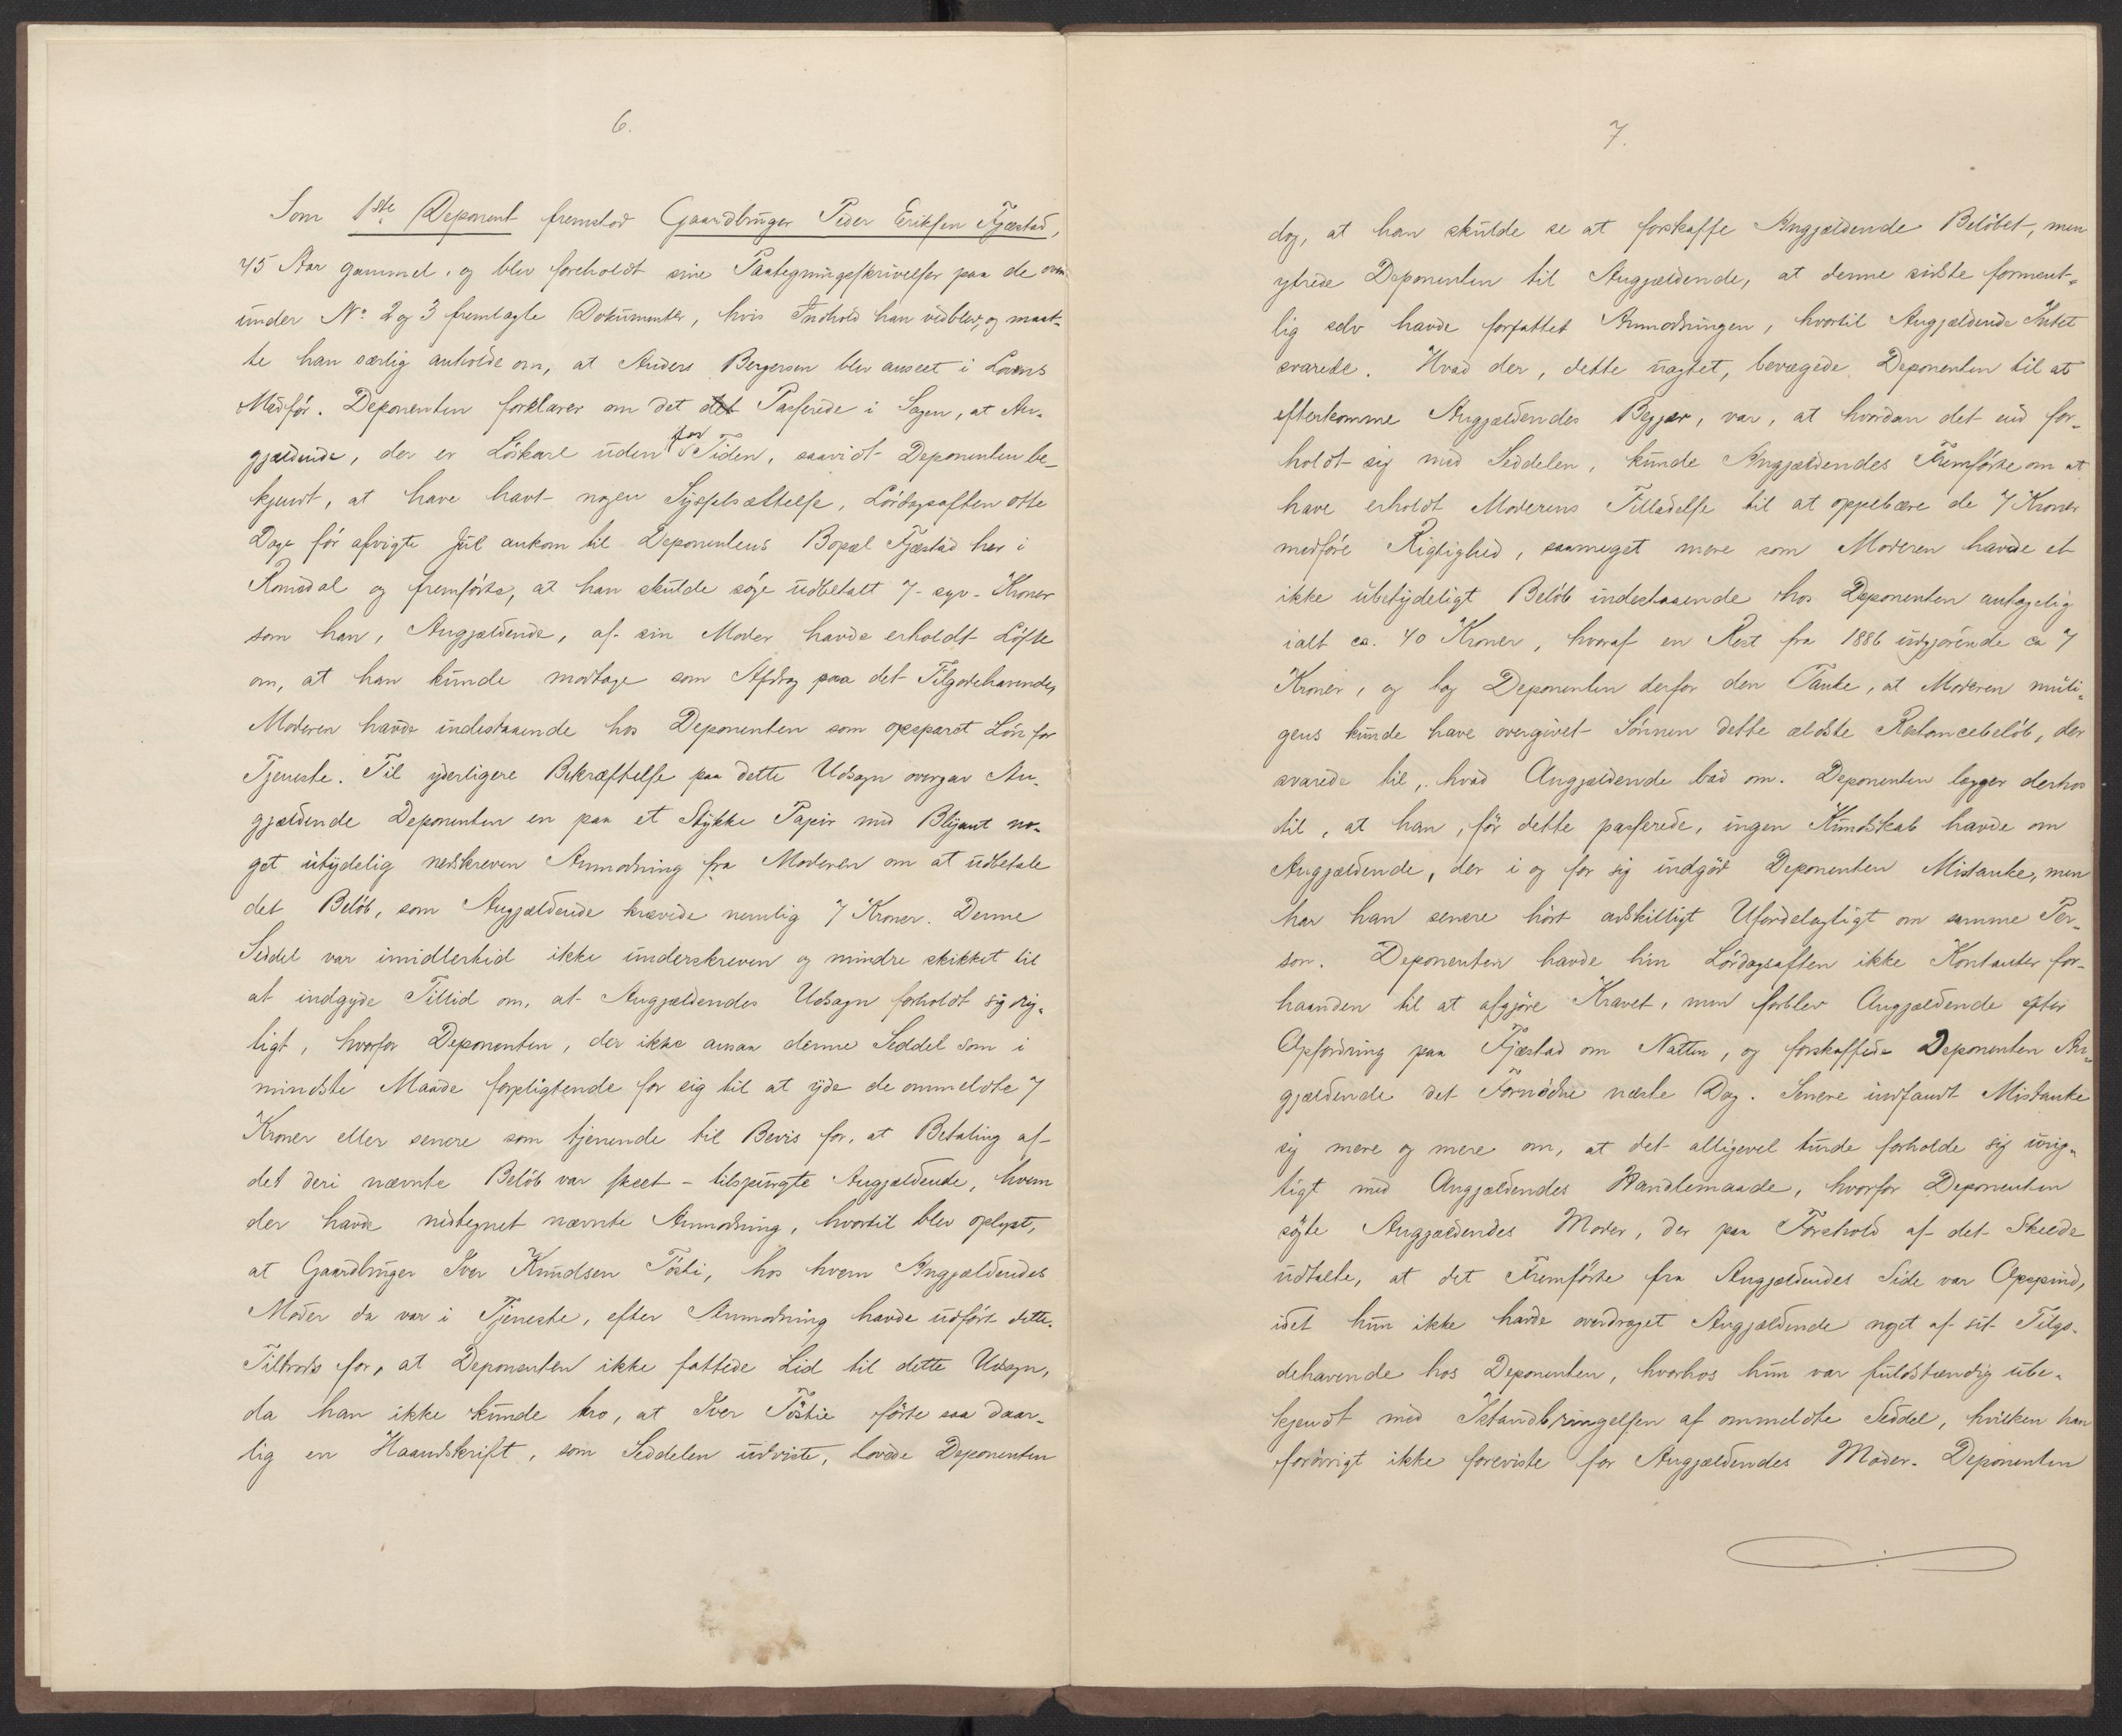 6.
Som 1ste Deponent fremstod Gaardbruger Peder Eriksen Fjæstad,
45 Aar gammel, og blev foreholdt sine Paategningsskrivelser paa de
under No 2 og 3 fremlagte Dokumenter, hvis Indhold han vedblev, og maat-
te han særlig anholde om, at Anders Bergersen blev anseet i Lovens
Medför. Deponenten forklarer om det det Passerede i Sagen, at An-
gjældende, der er Löskarl uden for Tiden, saavidt Deponenten be-
kjendt, at have havt nogen Sysselsættelse, Lördagsaften otte
Dage för afvigte Jul ankom til Deponentens Bopæl Fjæstad her i
Romsdal og fremförte, at han skulde söge udbetalt 7 - syv - Kroner
som han, Angjældende, af sin Moder havde erholdt Löfte
om, at han kunde modtage som Afdrag paa det Tilgodehavende,
Moderen havde indestaaende hos Deponenten som opsparet Lön for
Tjeneste. Til yderligere Bekræftelse paa dette Udsagn overgav An-
gjældende Deponenten en paa et Stykke Papir med Blyant no-
get utydelig nedskreven Anmodning fra Moderen om at udbetale
det Belöb, som Angjældende krævede nemlig 7 Kroner. Denne
Seddel var imidlertid ikke underskreven og mindre skikket til
at indgyde Tillid om, at Angjældendes Udsagn forholdt sig rig-
tigt, hvorfor Deponenten, der ikke ansaa denne Seddel som i
mindste Maade forpligtende for sig til at yde de ommeldte 7
Kroner eller senere som tjenende til Bevis for, at Betaling af
det deri nævnte Belöb var skeet - tilspurgte Angjældende, hvem
der havde nedtegnet nævnte Anmodning, hvortil blev oplyst,
at Gaardbruger Iver Knudsen Tösti, hos hvem Angjældendes
Moder da var i Tjeneste, efter Anmodning havde udfört dette.
Tiltrods for, at Deponenten ikke fattede Lid til dette Udsagn,
da han ikke kunde tro, at Iver Töstie förte saa daar-
lig en Haandskrift, som Seddelen udviste, lovede Deponenten
7.
dog, at han skulde se at forskaffe Angjældende Belöbet, men
ytrede Deponenten til Angjældende, at denne sidste forment-
lig selv havde forfattet Anmodningen, hvortil Angjældende Intet
svarede. Hvad der, dette uagtet, bevægede Deponenten til at
efterkomme Angjældendes Begjær, var, at hvordan det end for-
holdt sig med Seddelen, kunde Angjældendes Fremförte om at
have erholdt Moderens Tilladelse til at oppebære de 7 Kroner
medföre Rigtighed, saameget mere som Moderen havde et
ikke ubetydeligt Belöb indestaaende hos Deponenten antagelig
ialt ca. 40 Kroner, hvoraf en Rest fra 1886 udgjörende ca 7
Kroner, og tog Deponenten derfor den Tanke, at Moderen muli-
gens kunde have overgivet Sönnen dette ældste Restancebelöb, der
svarede til, hvad Angjældende bad om. Deponenten lægger derhos
til, at han, för dette passerede, ingen Kundskab havde om
Angjældende, der i og for sig indgöd Deponenten Mistanke, men
har han senere hört adskilligt Ufordelagtigt om samme Per-
son. Deponenten havde hin Lördagsaften ikke Kontanter for-
haanden til at afgjöre Kravet, men forblev Angjældende efter
Opfordring paa Fjæstad om Natten, og forskaffede Deponenten An-
gjældende det Fornödne næste Dag. Senere indfandt Mistanke
sig mere og mere om, at det alligevel turde forholde sig urig-
tigt med Angjældendes Handlemaade, hvorfor Deponenten
sögte Angjældendes Moder, der paa Forehold af det Skeede
udtalte, at det Fremförte fra Angjældendes Side var Opspind,
idet hun ikke havde overdraget Angjældende noget af sit Tilgo-
dehavende hos Deponenten, hvorhos hun var fuldstændig ube-
kjendt med Istandbringelsen af ommeldte Seddel, hvilken han
forövrigt ikke foreviste for Angjældendes Moder. Deponenten